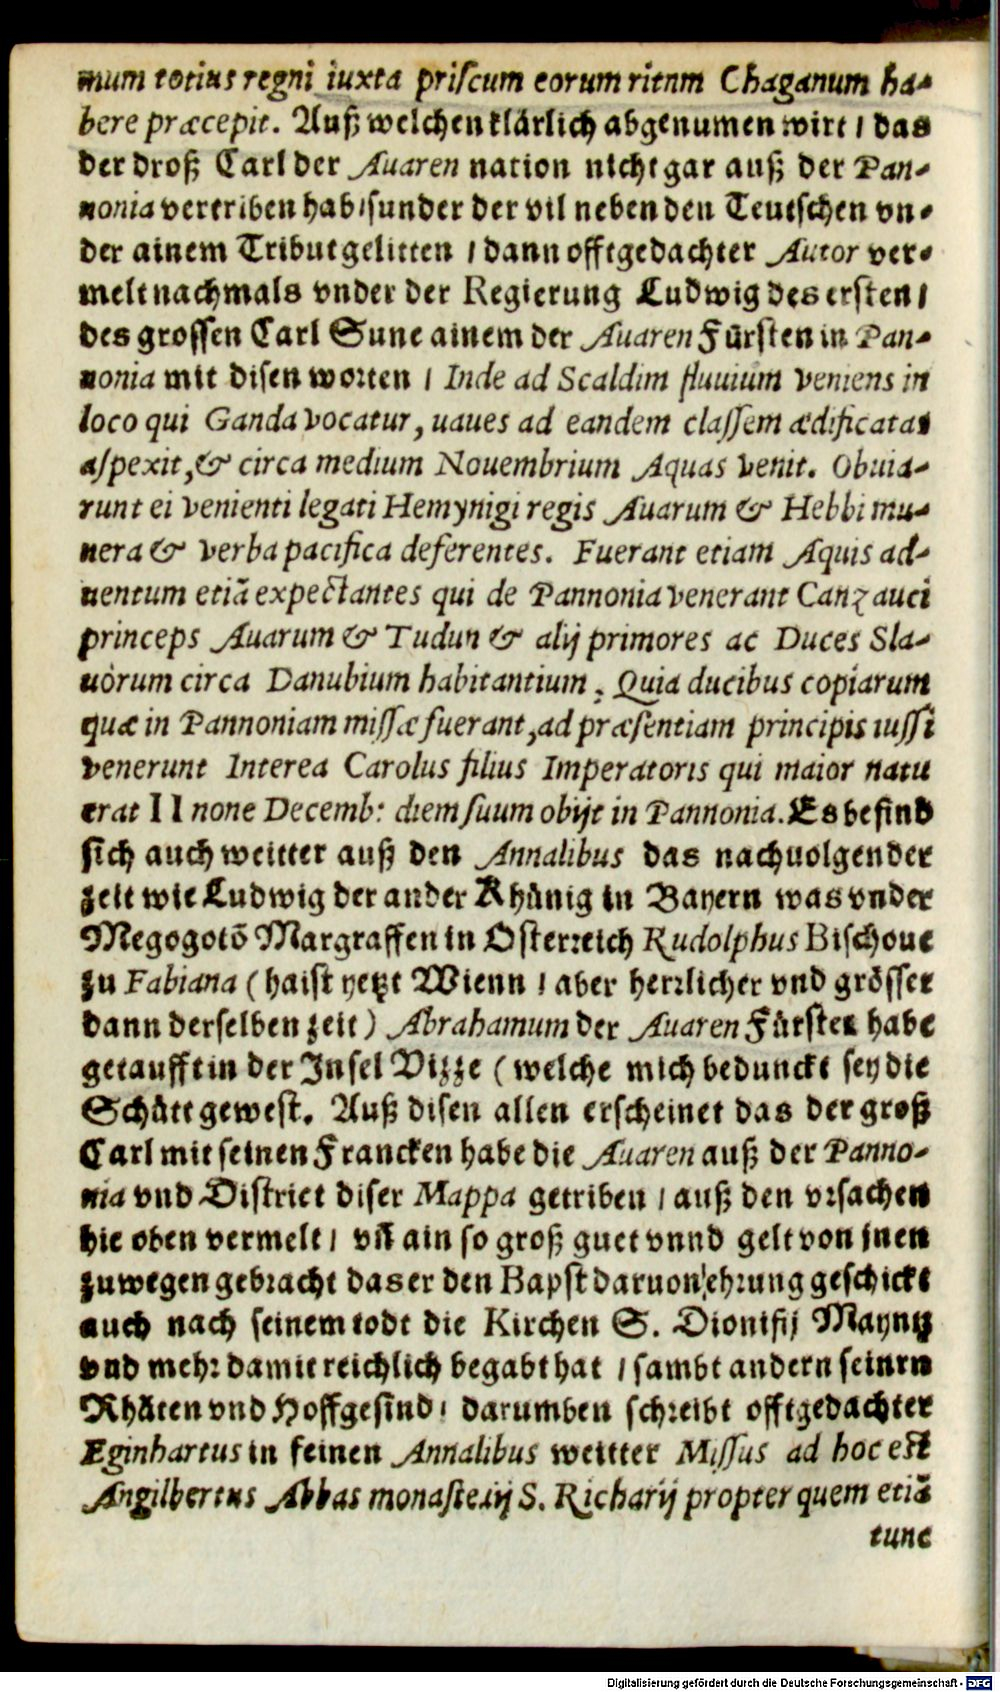 mum totius regni iuxta priſcum eorum ritnm Chaganum ha-
bere præcepit. Auß welchen klärlich abgenumen wirt / das
der droß Carl der Auaren nation nicht gar auß der Pan-
nonia vertriben hab / sunder der vil neben den Teutschen vn-
der ainem Tribut gelitten / dann offtgedachter Autor ver-
melt nachmals vnder der Regierung Ludwig des ersten /
des grossen Carl Sune ainem der Auaren Fürsten in Pan-
nonia mit disen worten / Inde ad Scaldim fluuium veniens in
loco qui Ganda vocatur, uaues ad eandem claſſem ædificatas
aſpexit, & circa medium Nouembrium Aquas venit. Obuia-
runt ei venienti legati Hemynigi regis Auarum & Hebbi mu-
nera & verba pacifica deferentes. Fuerant etiam Aquis ad-
uentum etiā expectantes qui de Pannonia venerant Canzauci
princeps Auarum & Tudun & alij primores ac Duces Sla-
uorum circa Danubium habitantium. Quia ducibus copiarum
quæ in Pannoniam miſſæ fuerant, ad præſentiam principis iuſſi
venerunt Interea Carolus filius Imperatoris qui maior natu
erat II none Decemb: diem ſuum obijt in Pannonia. Es befind
sich auch weitter auß den Annalibus das nachuolgender
zeit wie Ludwig der ander Khünig in Bayern was vnder
Megogotō Margraffen in Osterreich Rudolphus Bischoue
zu Fabiana (haist yetzt Wienn / aber herrlicher vnd grösser
dann derselben zeit) Abrahamum der Auaren Fürsten habe
getaufft in der Insel Vizze (welche mich bedunckt sey die
Schütt gewest. Auß disen allen erscheinet das der groß
Carl mit seinen Francken habe die Auaren auß der Panno-
nia vnd District diser Mappa getriben / auß den vrsachen
hie oben vermelt / vnt ain so groß guet vnnd gelt von jnen
zuwegen gebracht das er den Bapst daruon ehrung geschickt
auch nach seinem todt die Kirchen S. Dionisij Mayntz
vnd mehr damit reichlich begabt hat / sambt andern seinrn
Rhäten vnd Hoffgesind / darumben schreibt offtgedachter
Eginhartus in seinen Annalibus weitter Miſſus ad hoc est
Angilbertus Abbas monaſterij S. Richarij propter quem etiā
tunc
Digitalisierung gefördert durch die Deutsche Forschungsgemeinschaft - DFG